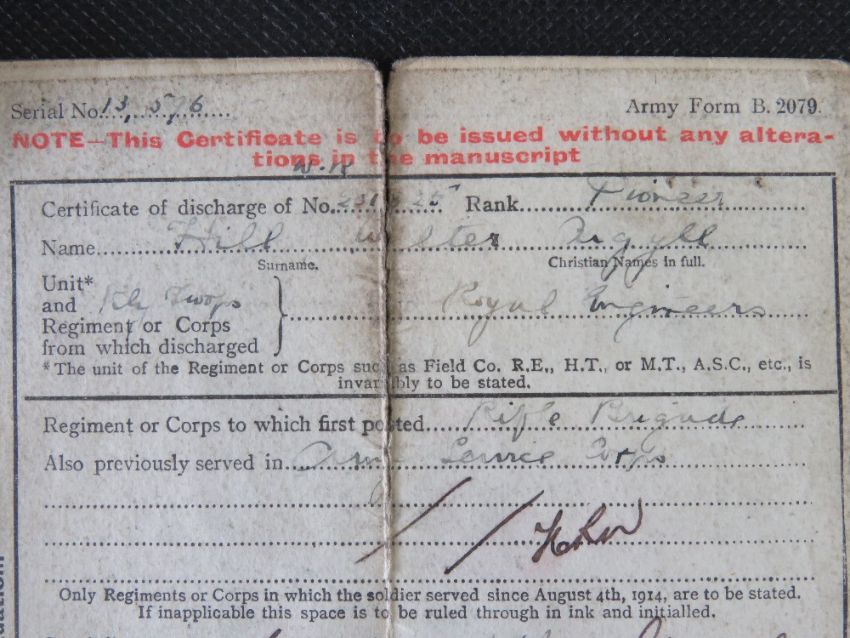 Serial No. 13,576 Army Form B. 2079.
NOTE—This Certificate is to be issued without any altera-
tions in the manuscript
W.R
Certificate of discharge of No. Rank Pioneer
Name Hill Walter Argyll
Surname. Christian Names in full.
Unit*
and Rly Troops Royal Engineers
Regiment or Corps
from which discharged
*The unit of the Regiment or Corps such as Field Co. R.E., H.T., or M.T., A.S.C., etc., is
invariably to be stated.
Regiment or Corps to which first posted Rifle Brigade
Also previously served in Army Service Corps
Only Regiments or Corps in which the soldier served since August 4th, 1914, are to be stated.
If inapplicable this space is to be ruled through in ink and initialled.